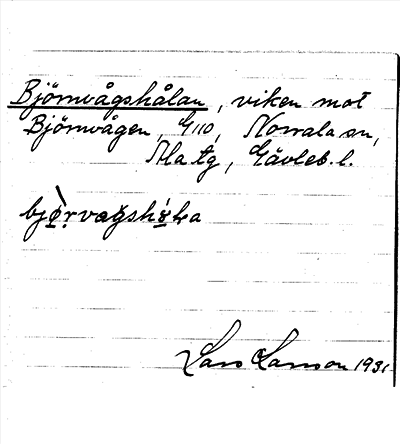 Björnvågshålan, viken mot
Björnvågen, E110, Norrala sn,
Ala tg, Gävleb. l.
Lars Larsson 1931